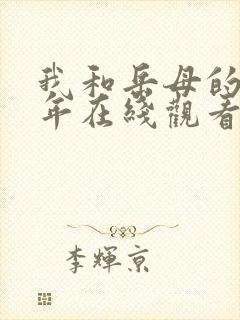 我和岳母的
年在线觀看
李輝京